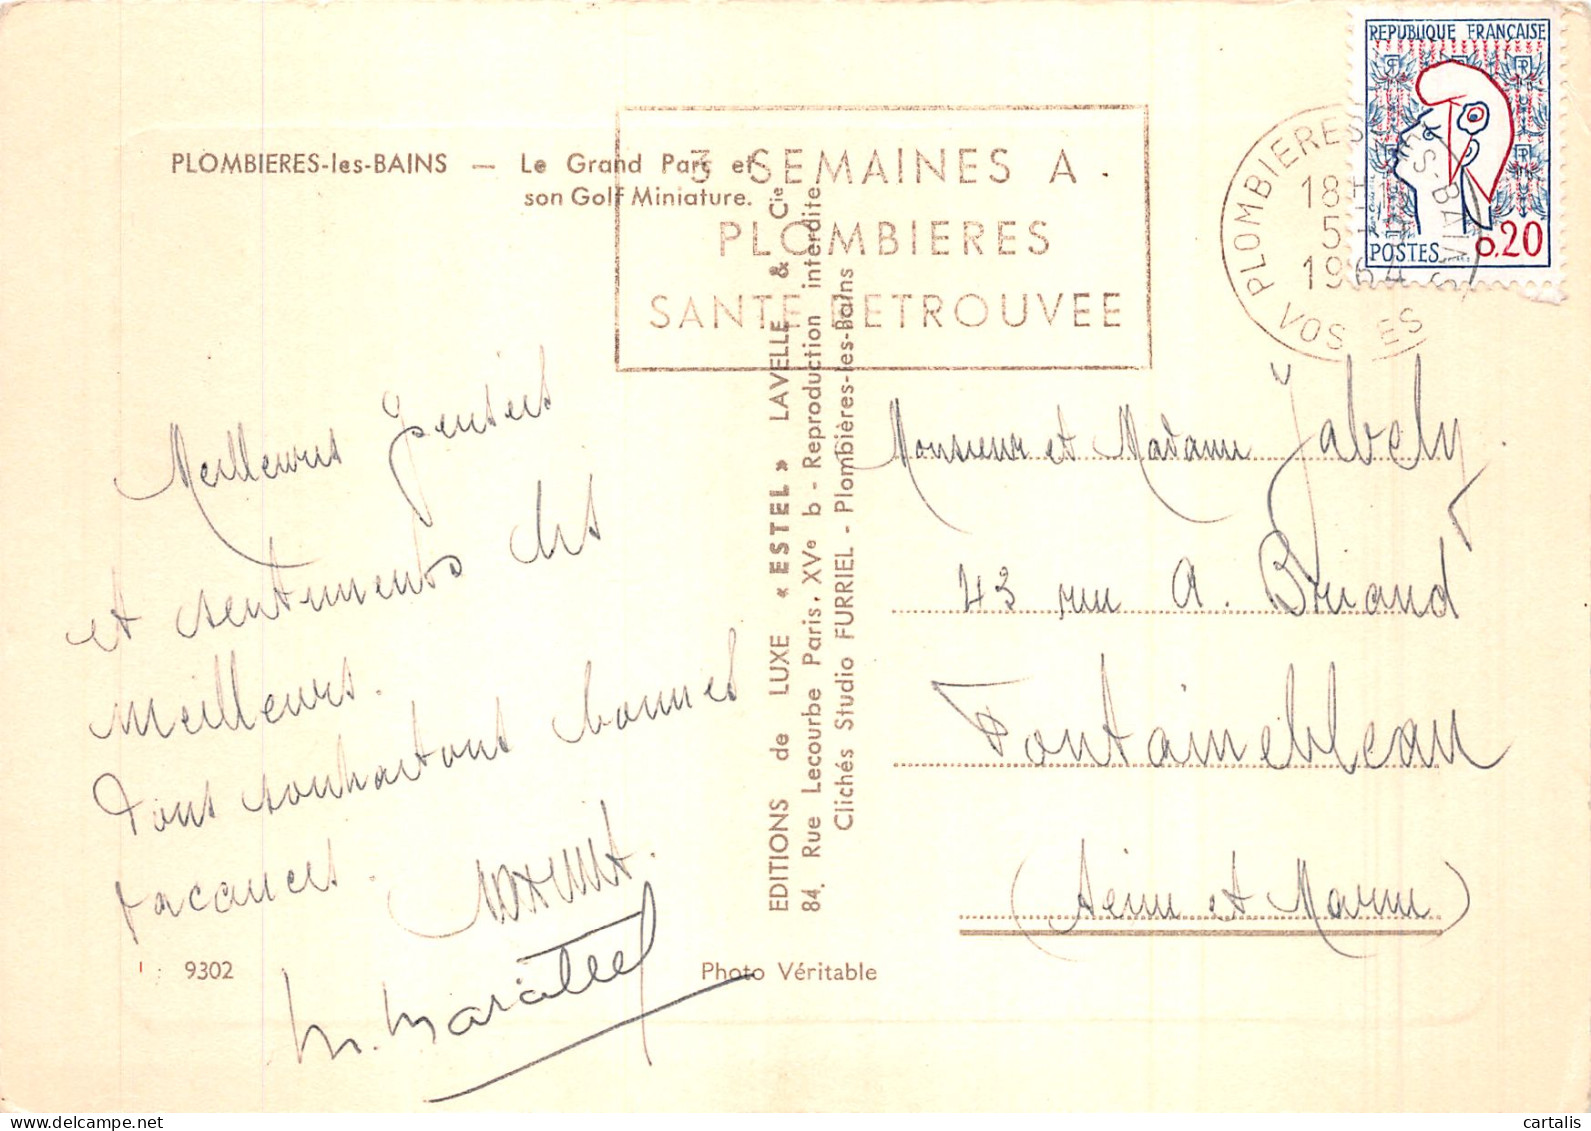 REPUBLIQUE FRANÇAISE
POSTES 0.20
PLOMBIERES-les-BAINS — Le Grand Parc et
son Golf Miniature.
3 SEMAINES A
PLOMBIERES
SANTE RETROUVEE
PLOMBIERES-LES-BAINS
18H
5
1964
VOSGES
Meilleures pensées
et sentiments les
meilleurs.
Vous souhaitons bonnes
vacances.
M.
EDITIONS de LUXE « ESTEL » LAVELLE & Cie
84, Rue Lecourbe Paris, XVe b - Reproduction interdite
Clichés Studio FURRIEL - Plombières-les-Bains
Monsieur et Madame Jabely.
43 rue A. Briand
Fontainebleau
(Seine et Marne)
9302
Photo Véritable
cartalis